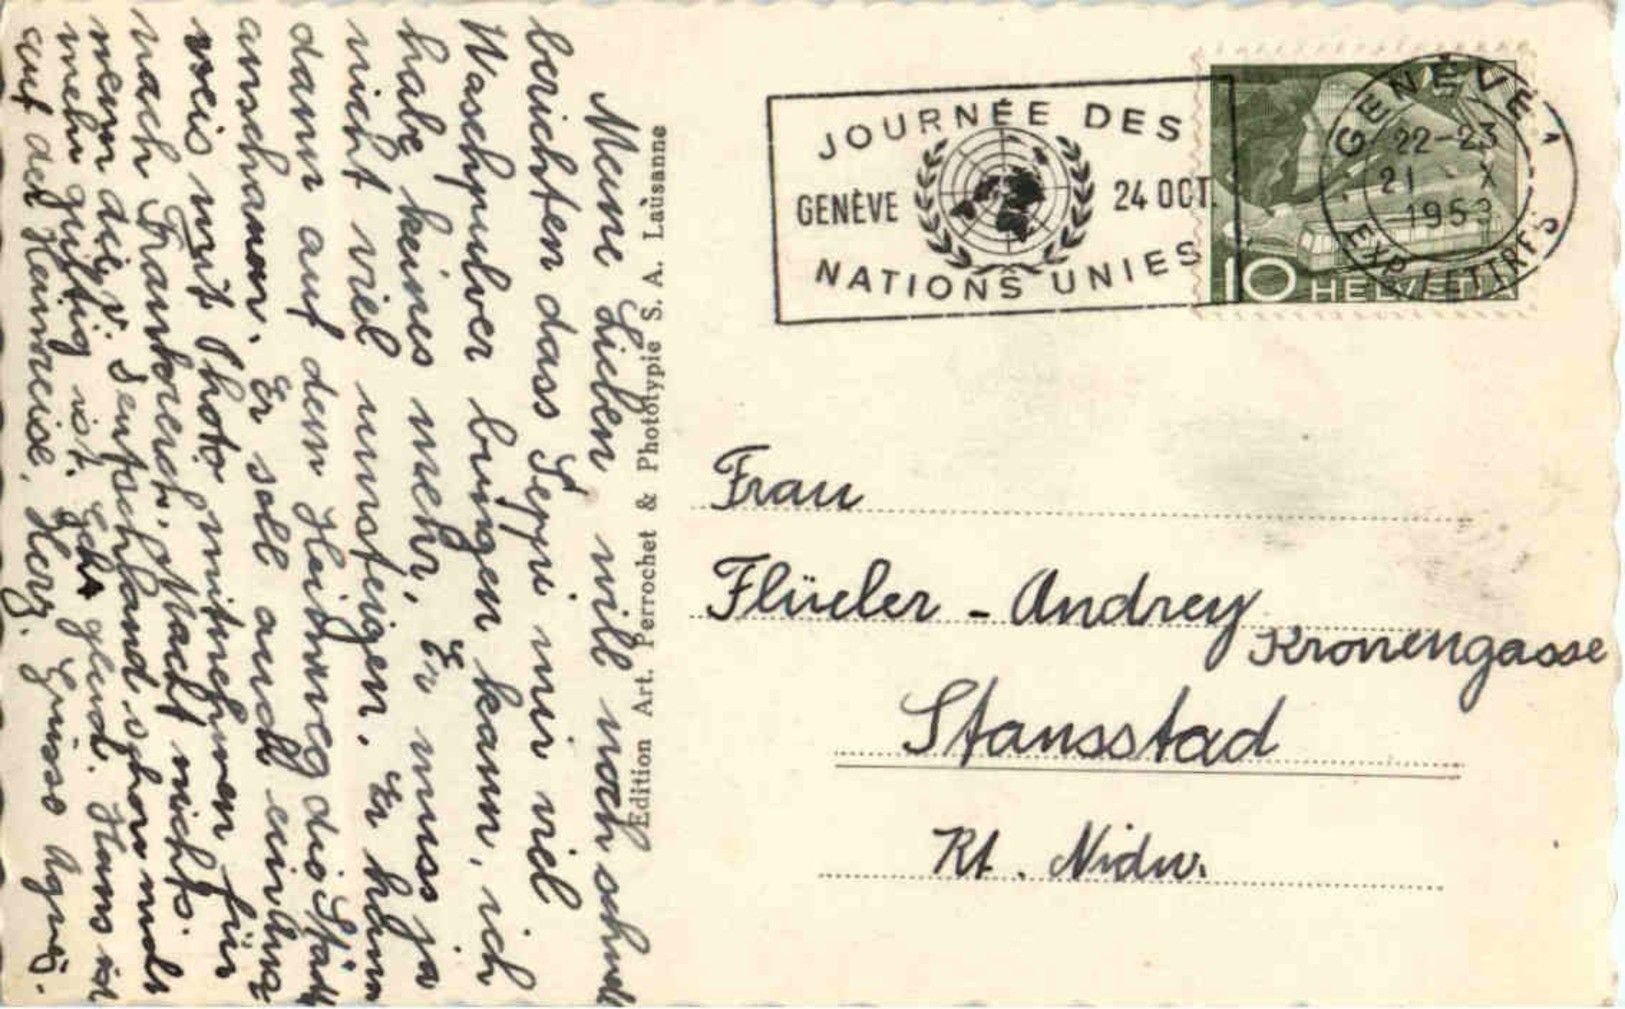 Meine Lieben, will noch schnell
berichten dass Seppi mir viel
Waschpulver bringen kann, ich
habe keines mehr, Er muss ja
nicht viel umsteigen. Er kann
dann auf dem Heimweg die Stadt
anschauen. Er soll auch ein
weis mit Photo mitnehmen für
nach Frankreich. Macht nichts.
wenn der v. Deutschland schon nicht
mehr gültig ist. Geht gleich. Hans ist
auf der Heimreise. Herz. Grüsse Agnes.
Edition Art. Perrochet & Phototypie S. A. Lausanne
JOURNÉE DES
GENÈVE 24 OCT.
NATIONS UNIES
GENÈVE 1
22-23
21 X
1953
EXP. LETTRES
10 HELVETIA
Frau
Flüeler - Andrey
Kronengasse
Stansstad
Kt. Nidw.